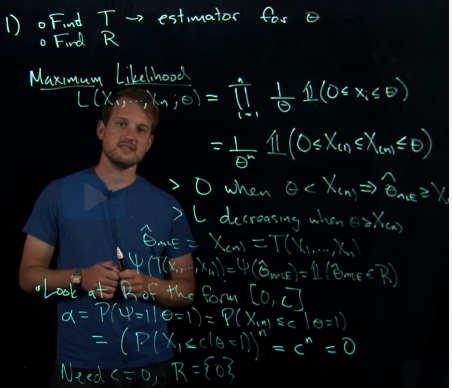 1) ○ Find T → estimator for θ
○ Find R
Maximum Likelihood
L(X₁,...,Xₙ;θ) = ∏ᵢ₌₁ⁿ 1/θ 𝟙(0≤xᵢ≤θ)
= 1/θⁿ 𝟙(0≤X₍₁₎≤X₍ₙ₎≤θ)
> 0 when θ < X₍ₙ₎ ⇒ θ̂ₘₗₑ ≥ X
> L decreasing when θ≥X₍ₙ₎
θ̂ₘₗₑ = X₍ₙ₎ = T(X₁,...,Xₙ)
Ψ(T(X₁,...,Xₙ)) = Ψ(θ̂ₘₗₑ) = 𝟙(θ̂ₘₗₑ ∈ R)
"Look at R of the form [0,c]
α = P(Ψ=1|θ=1) = P(X₍ₙ₎≤c|θ=1)
= (P(X₁≤c|θ=1))ⁿ = cⁿ = 0
Need c=0, R={0}